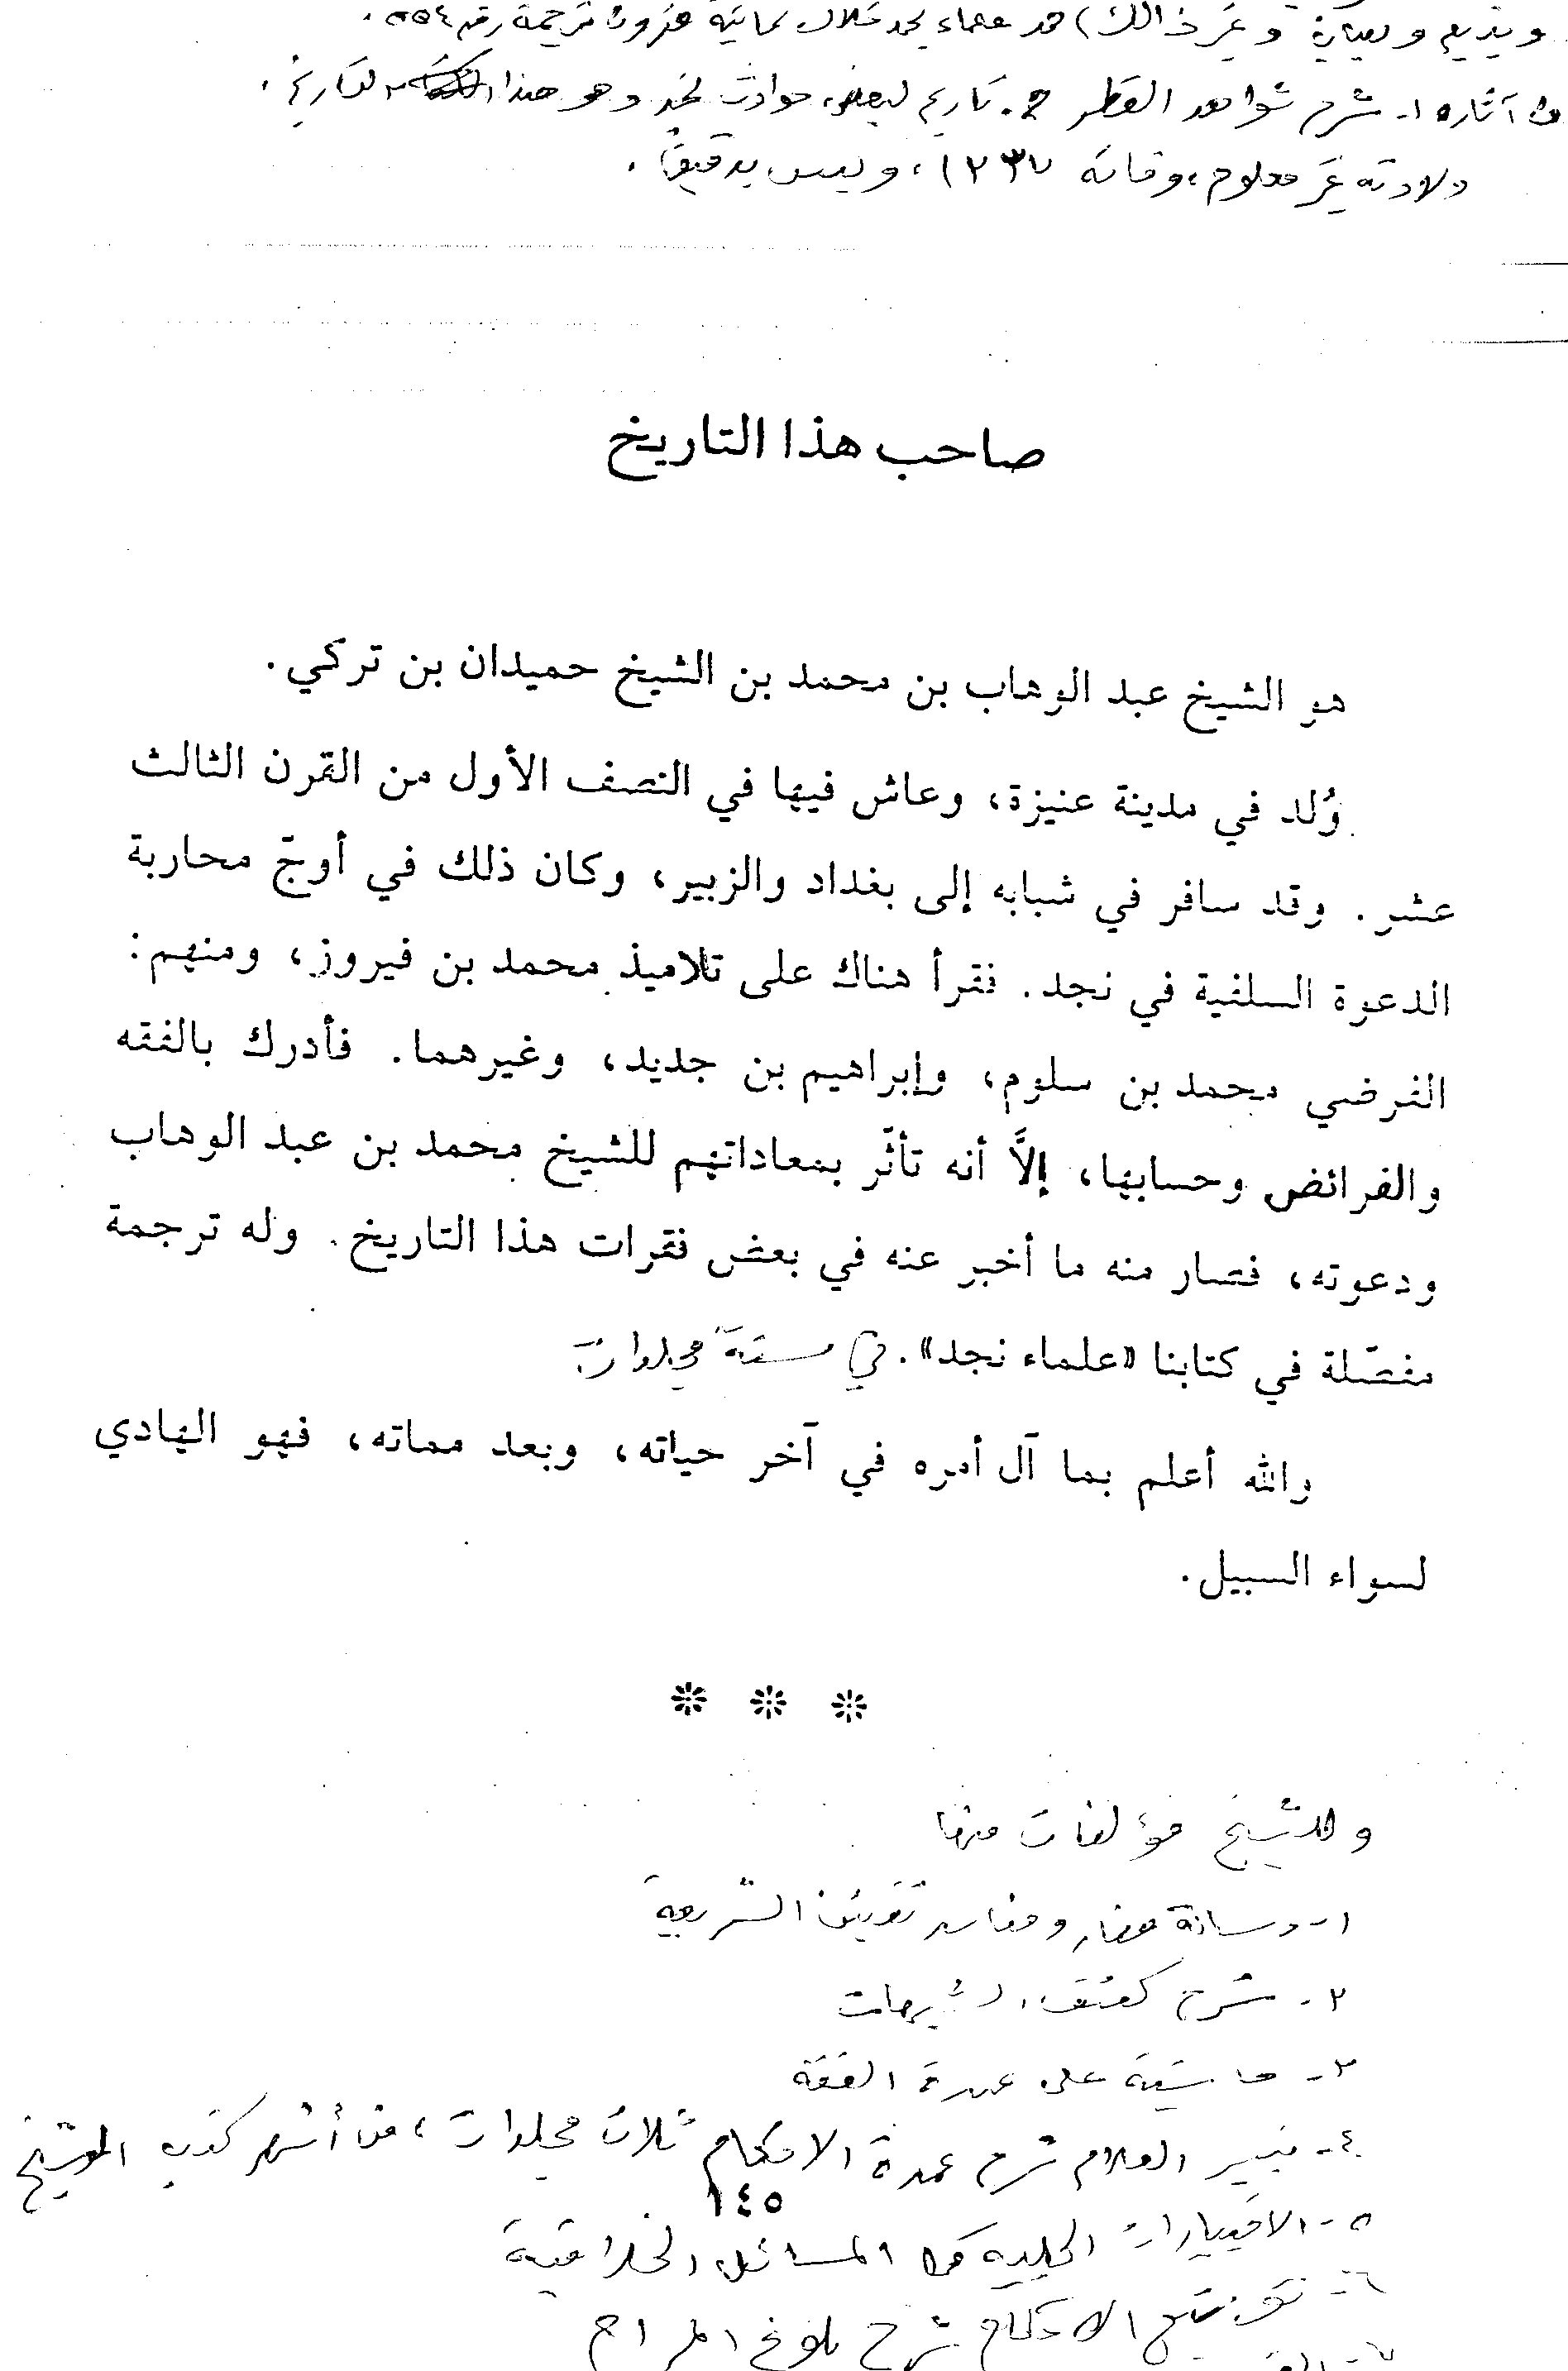 وبديع وبيان وغير ذالك) من علماء نجد خلال ثمانية قرون ترجمة رقم ٥٥٤.
من آثاره ١- شرح شواهد القطر ٢- تاريخ لبعض حوادث نجد وهو هذا التاريخ.
ولادته غير معلوم، وفاته ١٢٣٧، وليس بدقيق.
صاحب هذا التاريخ
هو الشيخ عبد الوهاب بن محمد بن الشيخ حميدان بن تركي.
وُلد في مدينة عنيزة، وعاش فيها في النصف الأول من القرن الثالث
عشر. وقد سافر في شبابه إلى بغداد والزبير، وكان ذلك في أوجّ محاربة
الدعوة السلفية في نجد. فقرأ هناك على تلاميذ محمد بن فيروز، ومنهم:
الفرضي محمد بن سلوم، وإبراهيم بن جديد، وغيرهما. فأدرك بالفقه
والفرائض وحسابها، إلاَّ أنه تأثّر بمعاداتهم للشيخ محمد بن عبد الوهاب
ودعوته، فصار منه ما أخبر عنه في بعض فقرات هذا التاريخ. وله ترجمة
مفصّلة في كتابنا «علماء نجد». في ستة مجلدات
والله أعلم بما آل أمره في آخر حياته، وبعد مماته، فهو الهادي
لسواء السبيل.
وللشيخ مؤلفات منها
١- رسالة مضار ومفاسد تقنين الشريعة
٢- شرح كشف الشبهات
٣- حاشية على عمدة الفقه
٤- تيسير العلام شرح عمدة الاحكام ثلاث مجلدات، من أشهر كتب الشيخ
١٤٥
٥- الاختيارات الجلية من المسائل الخلافية
٦- توضيح الاحكام شرح بلوغ المرام